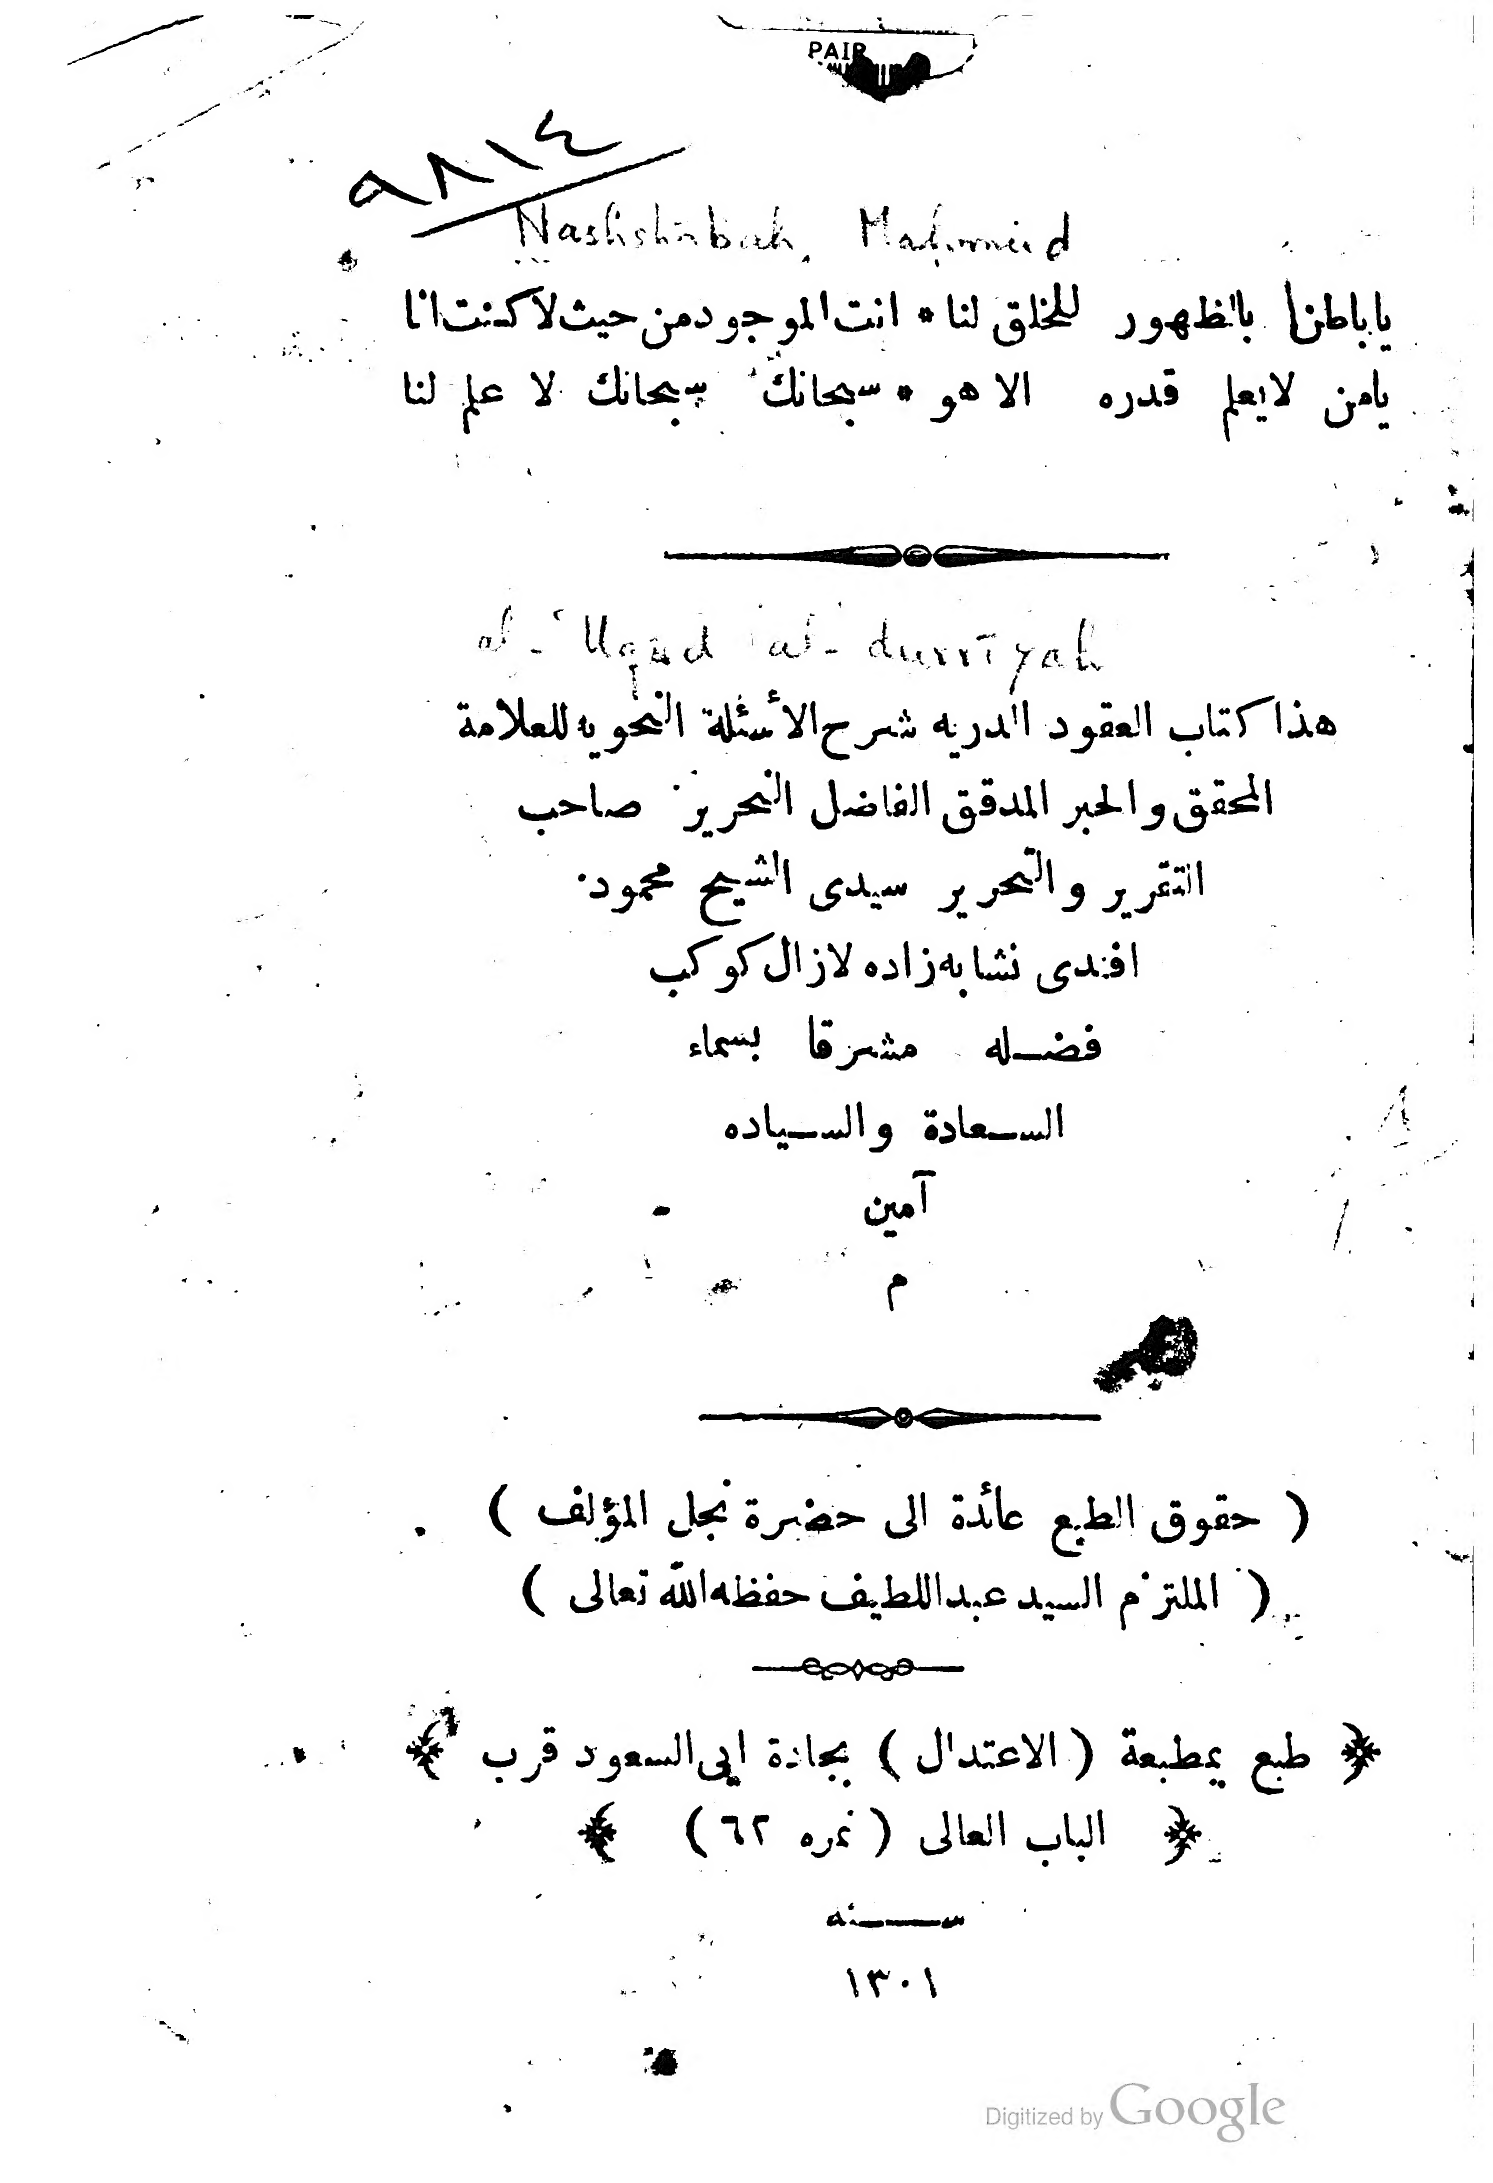 PAIR
٩٨١٤
Nashshābah, Maḥmūd
ياباطنا بالظهور للخلق لنا * انت الموجود من حيث لا كنت انا
يامن لايعلم قدره الا هو * سبحانك سبحانك لا علم لنا
al-ʻUqūd al-durrīyah
هذا كتاب العقود الدريه شرح الأسئلة النحويه للعلامة
المحقق والحبر المدقق الفاضل النحرير صاحب
التقرير والتحرير سيدى الشيخ محمود
افندى نشابه زاده لازال كوكب
فضله مشرقا بسماء
السعادة والسياده
آمين
م
( حقوق الطبع عائدة الى حضرة نجل المؤلف )
( الملتزم السيد عبداللطيف حفظه الله تعالى )
﴿ طبع بمطبعة ( الاعتدال ) بجادة ابى السعود قرب ﴾
﴿ الباب العالى ( نمره ٦٢ ) ﴾
سنه
١٣٠١
Digitized by Google